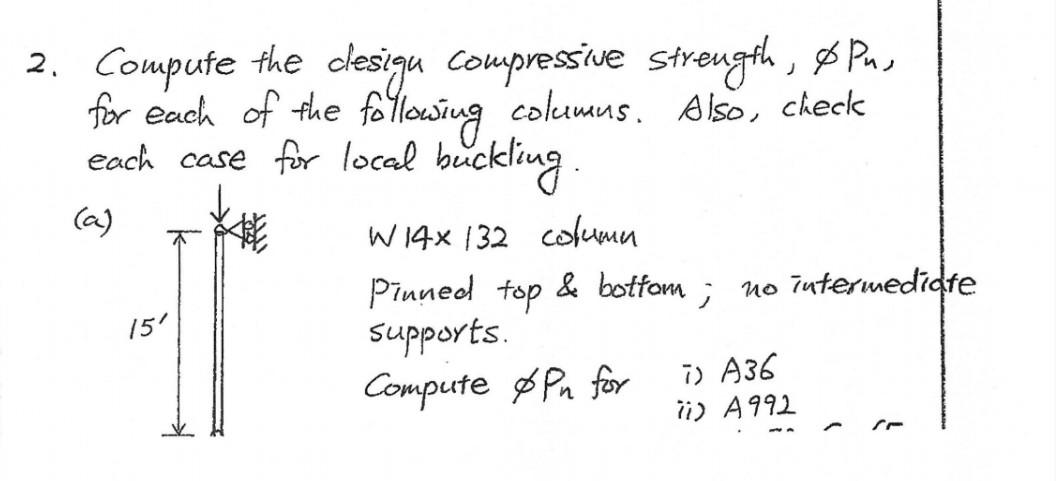 2. Compute the design compressive strength, ϕPn,
for each of the following columns. Also, check
each case for local buckling.
(a)
W 14x 132 column
Pinned top & bottom ; no intermediate
supports.
15'
Compute ϕPn for i) A36
ii) A992